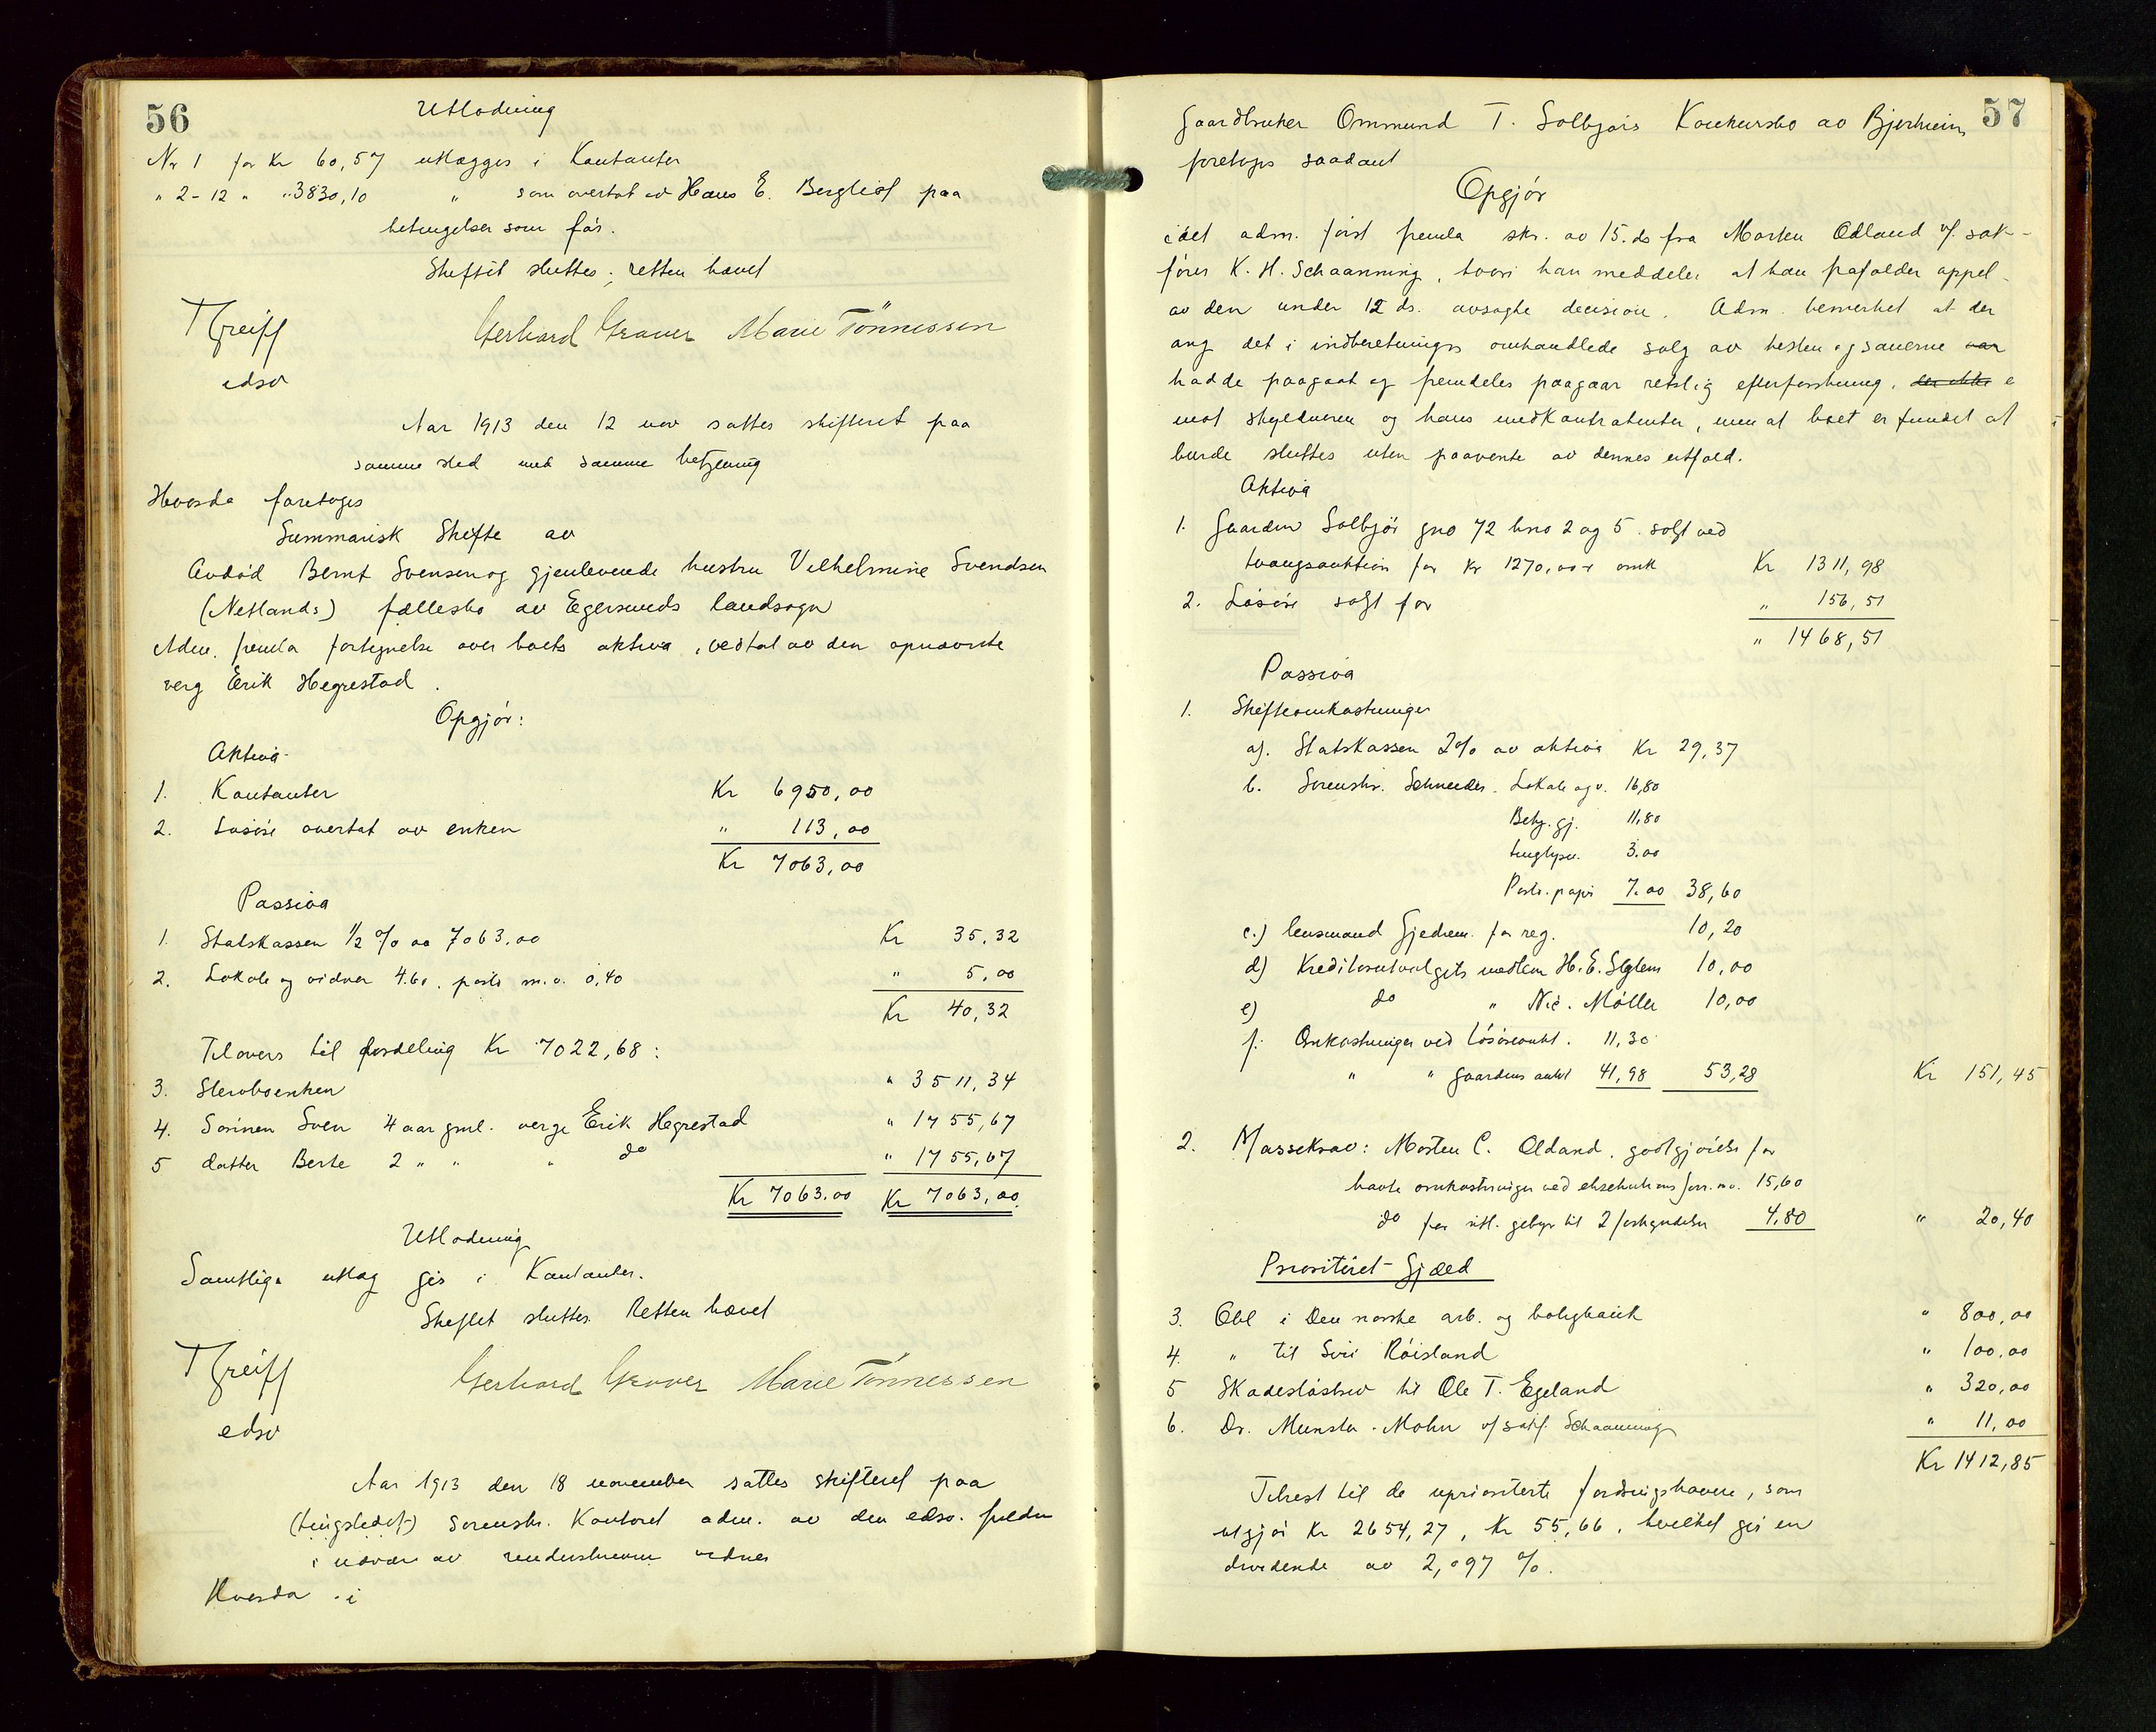 56
Utlodning
Nr 1 for Kr 60,57 utlægges i Kontanter
" 2-12 " "3830,10 " som overtat av Hans E. Bergliot paa
betingelser som før.
Skiftet sluttes; retten hævet
T Greiff
edsv
Gerhard Graver Marie Tönnessen
Aar 1913 den 12 nov sattes skifteret paa
samme sted med samme betjening
Hvorda foretoges
Summarisk Skifte av
Avdød Bernt Svensen og gjenlevende hustru Vilhelmine Svendsen
(Netlands) fællesbo av Egersunds landsogn
Adm. fremla fortegnelse over boets aktiva, vedtat av den opnævnte
verg Erik Hegrestad.
Opgjør:
Aktiva
1. Kontanter Kr 6950,00
2. Løsøre overtat av enken " 113,00
Kr 7063,00
Passiva
1. Statskassen 1/2 % av 7063.00 Kr 35,32
2. Lokale og vidner 4.60. porto m.v. 0,40 " 5,00
Kr 40,32
Tilovers til fordeling Kr 7022,68:
3. Stervboenken " 3511,34
4. Sønnen Sven 4 aar gml. verge Erik Hegrestad " 1755,67
5 datter Berte 2 " " " do " 1755,67
Kr 7063.00 Kr 7063,00.
Utlodning
Samtlige utlæg gis i Kontanter.
Skiftet sluttes. Retten hævet
T Greiff
edsv
Gerhard Graver Marie Tönnessen
Aar 1913 den 18 november sattes skifteret paa
(tingstedet) sorenskr. Kontoret adm. av den edsv. fuldm
i nærvær av underskrevne vidner
Hvorda i
57
Gaardbruker Ommund T. Solbjørs Konkursbo av Bjerkreim
foretoges saadant
Opgjør
idet adm. først fremla skr. av 15. ds fra Morten Odland v/ sak-
fører K. H. Schaanning, hvori han meddeler at han frafalder appel
av den under 12 ds. avsagte decision. Adm. bemerket at der
ang det i indberetningen omhandlede salg av hesten og sauerne var
hadde paagaat og fremdeles paagaar retslig efterforskning, der ikke e
mot skyldneren og hans medkontrahenter, men at boet er fundet at
burde sluttes uten paavente av dennes utfald.
Aktiva
1. Gaarden Solbjør gno 72 bno 2 og 5 solgt ved
tvangsauktion for Kr 1270,00 + omk Kr 1311,98
2. Løsøre solgt for " 156,51
" 1468,51
Passiva
1. Skifteomkostninger
a). Statskassen 2% av aktiva Kr 29,37
b. Sorenskr. Schneider. Lokale og v. 16,80
Betj. gj. 11,80
tinglysn. 3.00
Porto. papir 7.00 38,60
c.) lensmand Gjedrem for reg. 10,20
d) Kreditorutvalgets medlem H. E. Seglem 10,00
e) do " Nic. Møller 10,00
f. Omkostninger ved løsøreaukt. 11,30
" " gaardens aukt 41,98 53,28 Kr 151,45
2. Massekrav: Morten C. Odland. godtgjørelse for
havte omkostninger ved eksekutions forr. m.v. 15,60
do for utl. gebyr til 2 forkyndelser 4,80 " 20,40
Prioritéret Gjæld
3. Obl i Den norske arb. og boligbank " 800,00
4. " til Siri Røisland " 100,00
5 Skadesløsbrev til Ole T. Egeland " 320,00
6. Dr. Munster-Mohn v/ sakf. Schaanning " 11,00
Kr 1412,85
Tilrest til de uprioriterte fordringshavere, som
utgjør Kr 2654,27, Kr 55,66, hvilket gir en
dividende av 2,097 %.